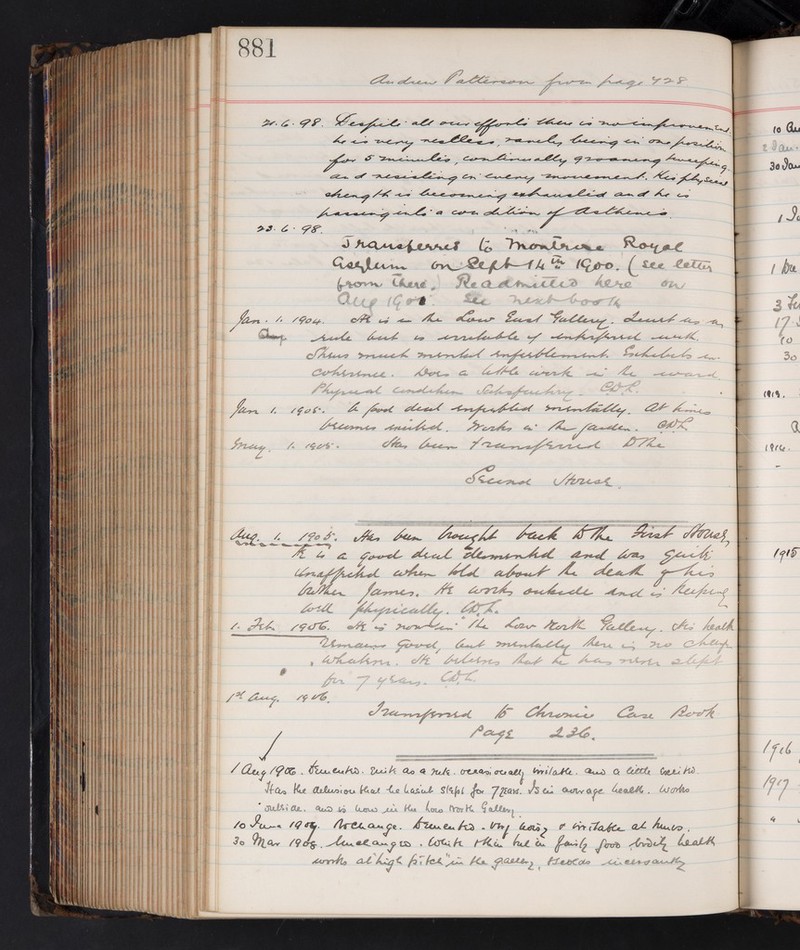 881
Andrew Patterson from page 428
21. 6. 98. Despite all our efforts there is no improvement.
he is very restless, rarely being in one position
for 5 minutes, continually groaning weeping
and resisting on every movement. His physical
strength is becoming exhausted and he is
passing into a condition of Asthenia.
23. 6. 98.
Transferred to Montrose Royal
Asylum on Sept 14th 1900. (see letter
from there.) Readmitted here on
Aug 1901 See next book
Jan. 1. 1904. He is in the Low East Gallery. Quiet as a
rule but is irritable if interfered with.
Shews much mental enfeeblement. Exhibits in-
coherence. Does a little work in the ward.
Physical condition Satisfactory. CDL.
Jan. 1. 1905. A good deal enfeebled mentally. At times
becomes excited. Works in the garden. CDL
May. 1. 1905. Has been transferred to the
Second House.
Aug. 1. 1905. Has been brought back to the First House,
He is a good deal demented and was quite
unaffected when told about the death of his
brother James. He works outside and is keeping
well physically. CDL.
1. Feb. 1906. He is now in the Low North Gallery. His health
remains good, but mentally there is no change
whatever. He believes that he has never slept
for 7 years. CDL.
1st Aug. 1906.
Transferred to Chronic Case Book
Page 236.
1 Aug 1906. Demented. Quiet as a rule. occasionally irritable. and a little excited.
Has the delusion that he hasnt slept for 7 years. Is in average health. Works
outside. and is now in the Low North Gallery.
10 June 1907. No change. Demented. Very noisy & irritable at times.
30 Mar 1908. Unchanged. White & thin but in fairly good bodily health
works at "high pitch" in the gallery, & scolds incessantly
10 Au
2 Jan
30 Jan
1 Dec
17
10
30
1913.
1914.
1915
1916
1917